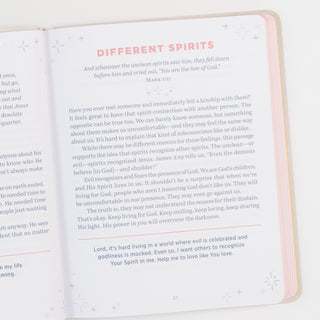 t once,
but go,
sing what
e out and
that Jesus
desolate
quarter.
anyone about his
to know who He
on't always make
e on earth ended.
He needed time to
e. He needed time
eople just wanting
m anyway. He sees
dent that no matter
in my life
aming.
DIFFERENT SPIRITS
And whenever the unclean spirits saw him, they fell down
before him and cried out, "You are the Son of God."
MARK 3:11
Have you ever met someone and immediately felt a kinship with them?
It feels great to have that spirit connection with another person. The
opposite can be true too. We can barely know someone, but something
about them makes us uncomfortable—and they may feel the same way
about us. It's hard to explain that kind of subconscious like or dislike.
While there may be different reasons for those feelings, this passage
supports the idea that spirits recognize other spirits. The unclean—or
evil—spirits recognized Jesus. James 2:19 tells us, "Even the demons
believe [in God]—and shudder."
Evil recognizes and fears the presence of God. We are God's children,
and His Spirit lives in us. It shouldn't be a surprise that when we're
living for God, people who aren't honoring God don't like us. They will
be uncomfortable in our presence. They may even go against us.
The truth is, they may not understand the reason for their disdain.
That's okay. Keep living for God. Keep smiling, keep loving, keep sharing
His light. His power in you will overcome the darkness.
Lord, it's hard living in a world where evil is celebrated and
godliness is mocked. Even so, I want others to recognize
Your Spirit in me. Help me to love like You love.